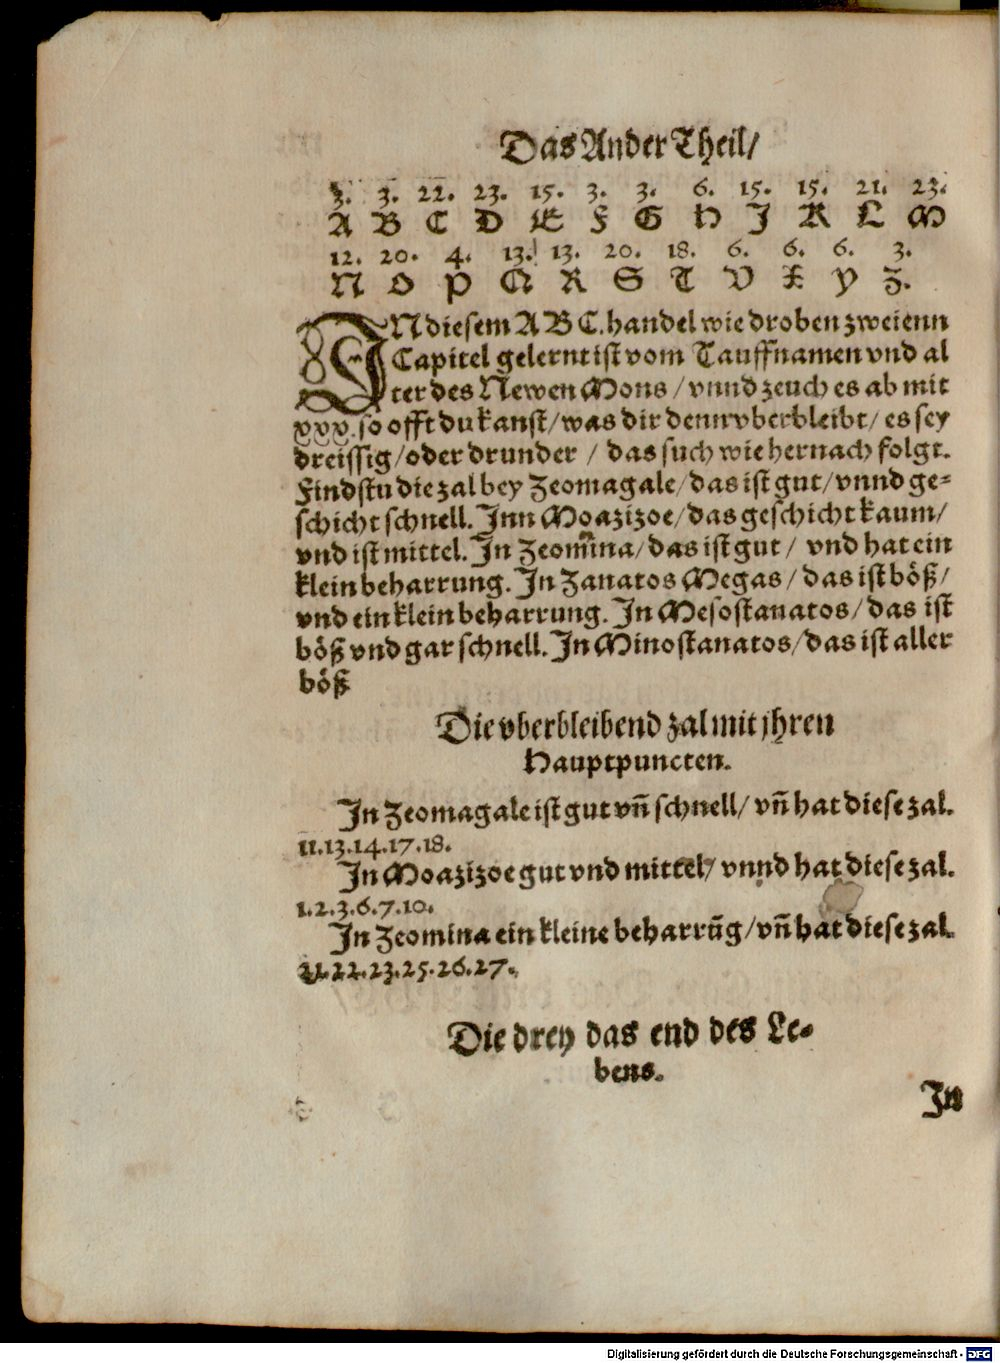 Das Ander Theil/
3. 3. 22. 23. 15. 3. 3. 6. 15. 15. 21. 23.
A B C D E F G H J K L M
12. 20. 4. 13. 13. 20. 18. 6. 6. 6. 3.
N O P Q R S T V X Y Z.
JN diesem A B C. handel wie droben zweienn
Capitel gelernt ist vom Tauffnamen vnd al
ter des Newen Mons / vnnd zeuch es ab mit
xxx. so offt du kanst/ was dir denn vberbleibt/ es sey
dreissig/ oder drunder / das such wie hernach folgt.
Findstu die zal bey Zeomagale/ das ist gut/ vnnd ge⸗
schicht schnell. Jnn Moazizoe/ das geschicht kaum/
vnd ist mittel. Jn Zeomina/ das ist gut / vnd hat ein
klein beharrung. Jn Zanatos Megas / das ist böß/
vnd ein klein beharrung. Jn Mesostanatos/ das ist
böß vnd gar schnell. Jn Minostanatos/ das ist aller
böß
Die vberbleibend zal mit jhren
Hauptpuncten.
Jn Zeomagale ist gut vñ schnell/ vñ hat diese zal.
11.13.14.17.18.
Jn Moazizoe gut vnd mittel/ vnnd hat diese zal.
1.2.3.6.7.10.
Jn Zeomina ein kleine beharrũg/ vñ hat diese zal.
21.22.23.25.26.27.
Die drey das end des Le⸗
bens.
Jn
Digitalisierung gefördert durch die Deutsche Forschungsgemeinschaft - DFG